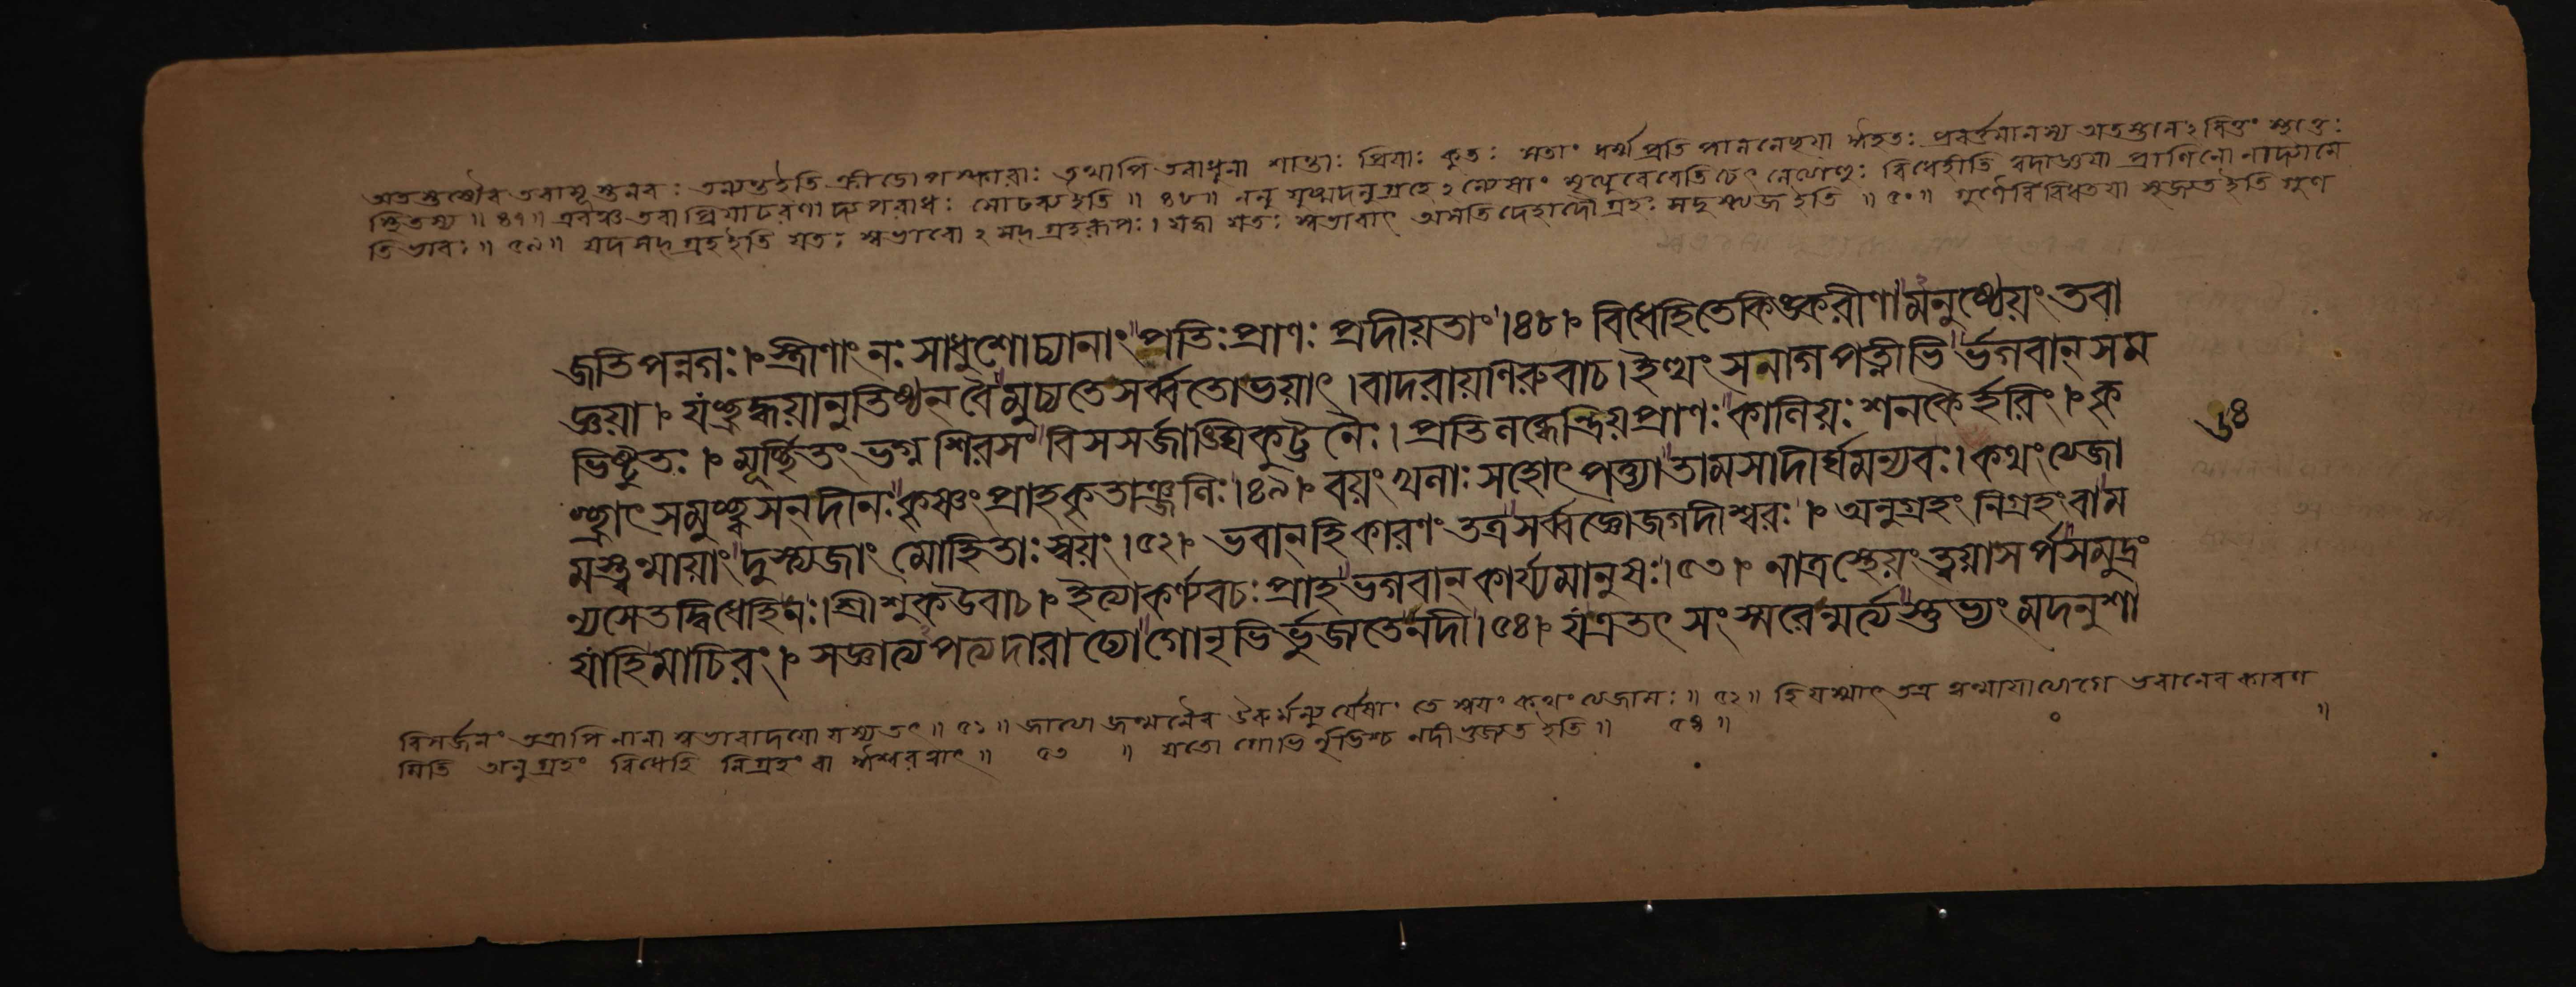 অতস্তথৈব তবামূ স্তনব: তস্যতইতি ক্রীডোপস্কারা: তথাপি তবাধুনা শান্তা: প্রিয়া: কুত: সতাং ধর্ম্ম প্রতি পালনেছয়া র্সহত: প্রবর্ত্তমানস্য
স্থিতস্য ॥ ৪৭ ॥ ইতি ॥ ৪৮ ॥ ননু যুষ্মদনুগ্রহে ২ বিধেহীতি ত্বদাজ্ঞয়া প্রাণিনো
তিভাব: ॥ ৪৯ ॥ যদসদ্গ্রহ ইতি যত: স্বভাবো ২ সদ্গ্রহরূপ: । যদ্বা যত: স্বভাবাৎ অসতি দেহাদৌ গ্রহ: ইতি ॥ ৫০ ॥ সৃজ্যতইতি গুণ
জতি পন্নগ: ।৹ স্ত্রীণাং ন: সাধুশোচ্যানাং পতি: প্রাণ: প্রদীয়তাং ।৪৮।৹ বিধেহিতেকিঙ্করীণামনুষ্ঠেয়ং তবা
জ্ঞয়া ।৹ যচ্ছ্রদ্ধয়ানুতিষ্ঠন বৈ মুচ্যতেসর্ব্বতোভয়াৎ । বাদরায়ণিরুবাচ । ইত্থং সনাগপত্নীভি র্ভগবান্ সম
ভিষ্টুত: ।৹ মূর্চ্ছিতং ভগ্ন শিরসং বিসসর্জাঙ্ঘ্রিকুট্টনৈ: । প্রতিলব্ধেন্দ্রিয়প্রাণ: কালিয়: শনকৈর্হরিং ।৹ কৃ
চ্ছ্রাৎ সমুচ্ছ্বসন্ দীন: কৃষ্ণং প্রাহকৃতাঞ্জলি: ।৪৯।৹ বয়ং খলা: সহোৎপত্ত্যা তামসাদীর্ঘমন্যব: । কথং ত্যেজা
মস্ত্বন্মায়াং দুস্ত্যজাং মোহিতা: স্বয়ং ।৫২।৹ ভবান্ হি কারণং তত্র সর্ব্বজ্ঞোজগদীশ্বর: ।৹ অনুগ্রহং নিগ্রহং বাম
ন্যসেতদ্বিধেহিন: । শ্রীশুকউবাচ ।৹ ইত্যাকর্ণ্যবচ: প্রাহ ভগবান্ কার্য্যমানুষ: ।৫৩।৹ নাত্রস্থেয়ং ত্বয়াসর্প সমুদ্রং
যাহিমাচিরং ।৹ সজ্ঞাত্যপত্যদারাঢ্যো গোনৃভি র্ভুজ্যতেনদী ।৫৪।৹ যএতৎ সংস্মরেন্মর্ত্য স্তুভ্যং মদনুশা
৬৪
বিসর্জনং তত্রাপি নানা স্বভাবাদয়ো যস্যতৎ ॥ ৫১ ॥ তে স্বয়ং কথং ত্যেজাম: ॥ ৫২ ॥ হি যস্মাৎ তত্র ভবানেব কারণ
মিতি অনুগ্রহং বিধেহি নিগ্রহং বা ॥ ৫৩ ॥ যতো গোভি র্নৃভিশ্চ নদী ভুজ্যত ইতি ॥ ৫৪ ॥